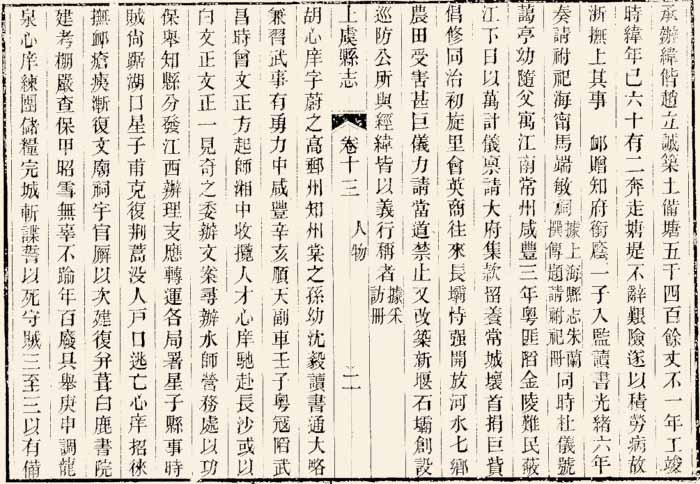 承辦緯偕趙立誠築土備塘五千四百餘丈不一年工竣
時緯年已六十有二奔走塘堤不辭艱險遂以積勞病故
浙撫上其事　䘏贈知府銜廕一子入監讀書光緒六年
奏請祔祀海甯馬端敏祠據上海縣志朱蘭撰傳題請祔祀冊同時杜儀號
藹亭幼隨父寓江南常州咸豐三年粵匪陷金陵難民蔽
江下日以萬計儀禀請大府集欵留養常城壞首捐巨貲
倡修同治初旋里會英商往來長壩恃强開放河水七鄉
農田受害甚巨儀力請當道禁止又改築新堰石壩創設
巡防公所與經緯皆以義行稱者據采訪冊
上虞縣志　卷十三　人物　二
胡心庠字蔚之高郵州知州棠之孫幼沈毅讀書通大略
兼習武事有勇力中咸豐辛亥順天副車壬子粵寇陷武
昌時曾文正方起師湘中收攬人才心庠馳赴長沙或以
白文正文正一見奇之委辦文案尋辦水師營務處以功
保舉知縣分發江西辦理支應轉運各局署星子縣事時
賊尙踞湖口星子甫克復荆蒿沒人戶口逃亡心庠招徠
撫䘏瘡痍漸復文廟祠宇官廨以次建復分葺白鹿書院
建考棚嚴查保甲昭雪無辜不踰年百廢具舉庚申調龍
泉心庠練團儲糧完城斬諜誓以死守賊三至三以有備